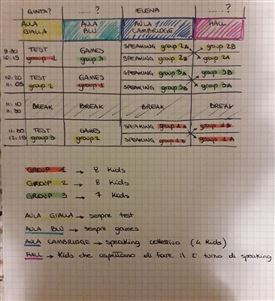 GIUNTA? ? ELENA ?
AULA GIALLA AULA BLU AULA CAMBRIDGE HALL
9:30 TEST GAMES SPEAKING group 2B group 2B
10:15 group 1 group 3 SPEAKING group 2A group 2A
10:20 TEST GAMES SPEAKING group 3A group 3B
11:05 group 2 group 1 SPEAKING group 3B group 3A
11:10 BREAK BREAK BREAK BREAK
11:30
11:30 TEST GAMES SPEAKING group 1A group 1B
12:15 group 3 group 2 SPEAKING group 1B group 1A
GROUP 1 → 8 Kids
GROUP 2 → 8 Kids
GROUP 3 → 7 Kids
AULA GIALLA → sempre test
AULA BLU → sempre games
AULA CAMBRIDGE → speaking collettivo (4 Kids)
HALL → Kids che aspettano di fare il turno di speaking